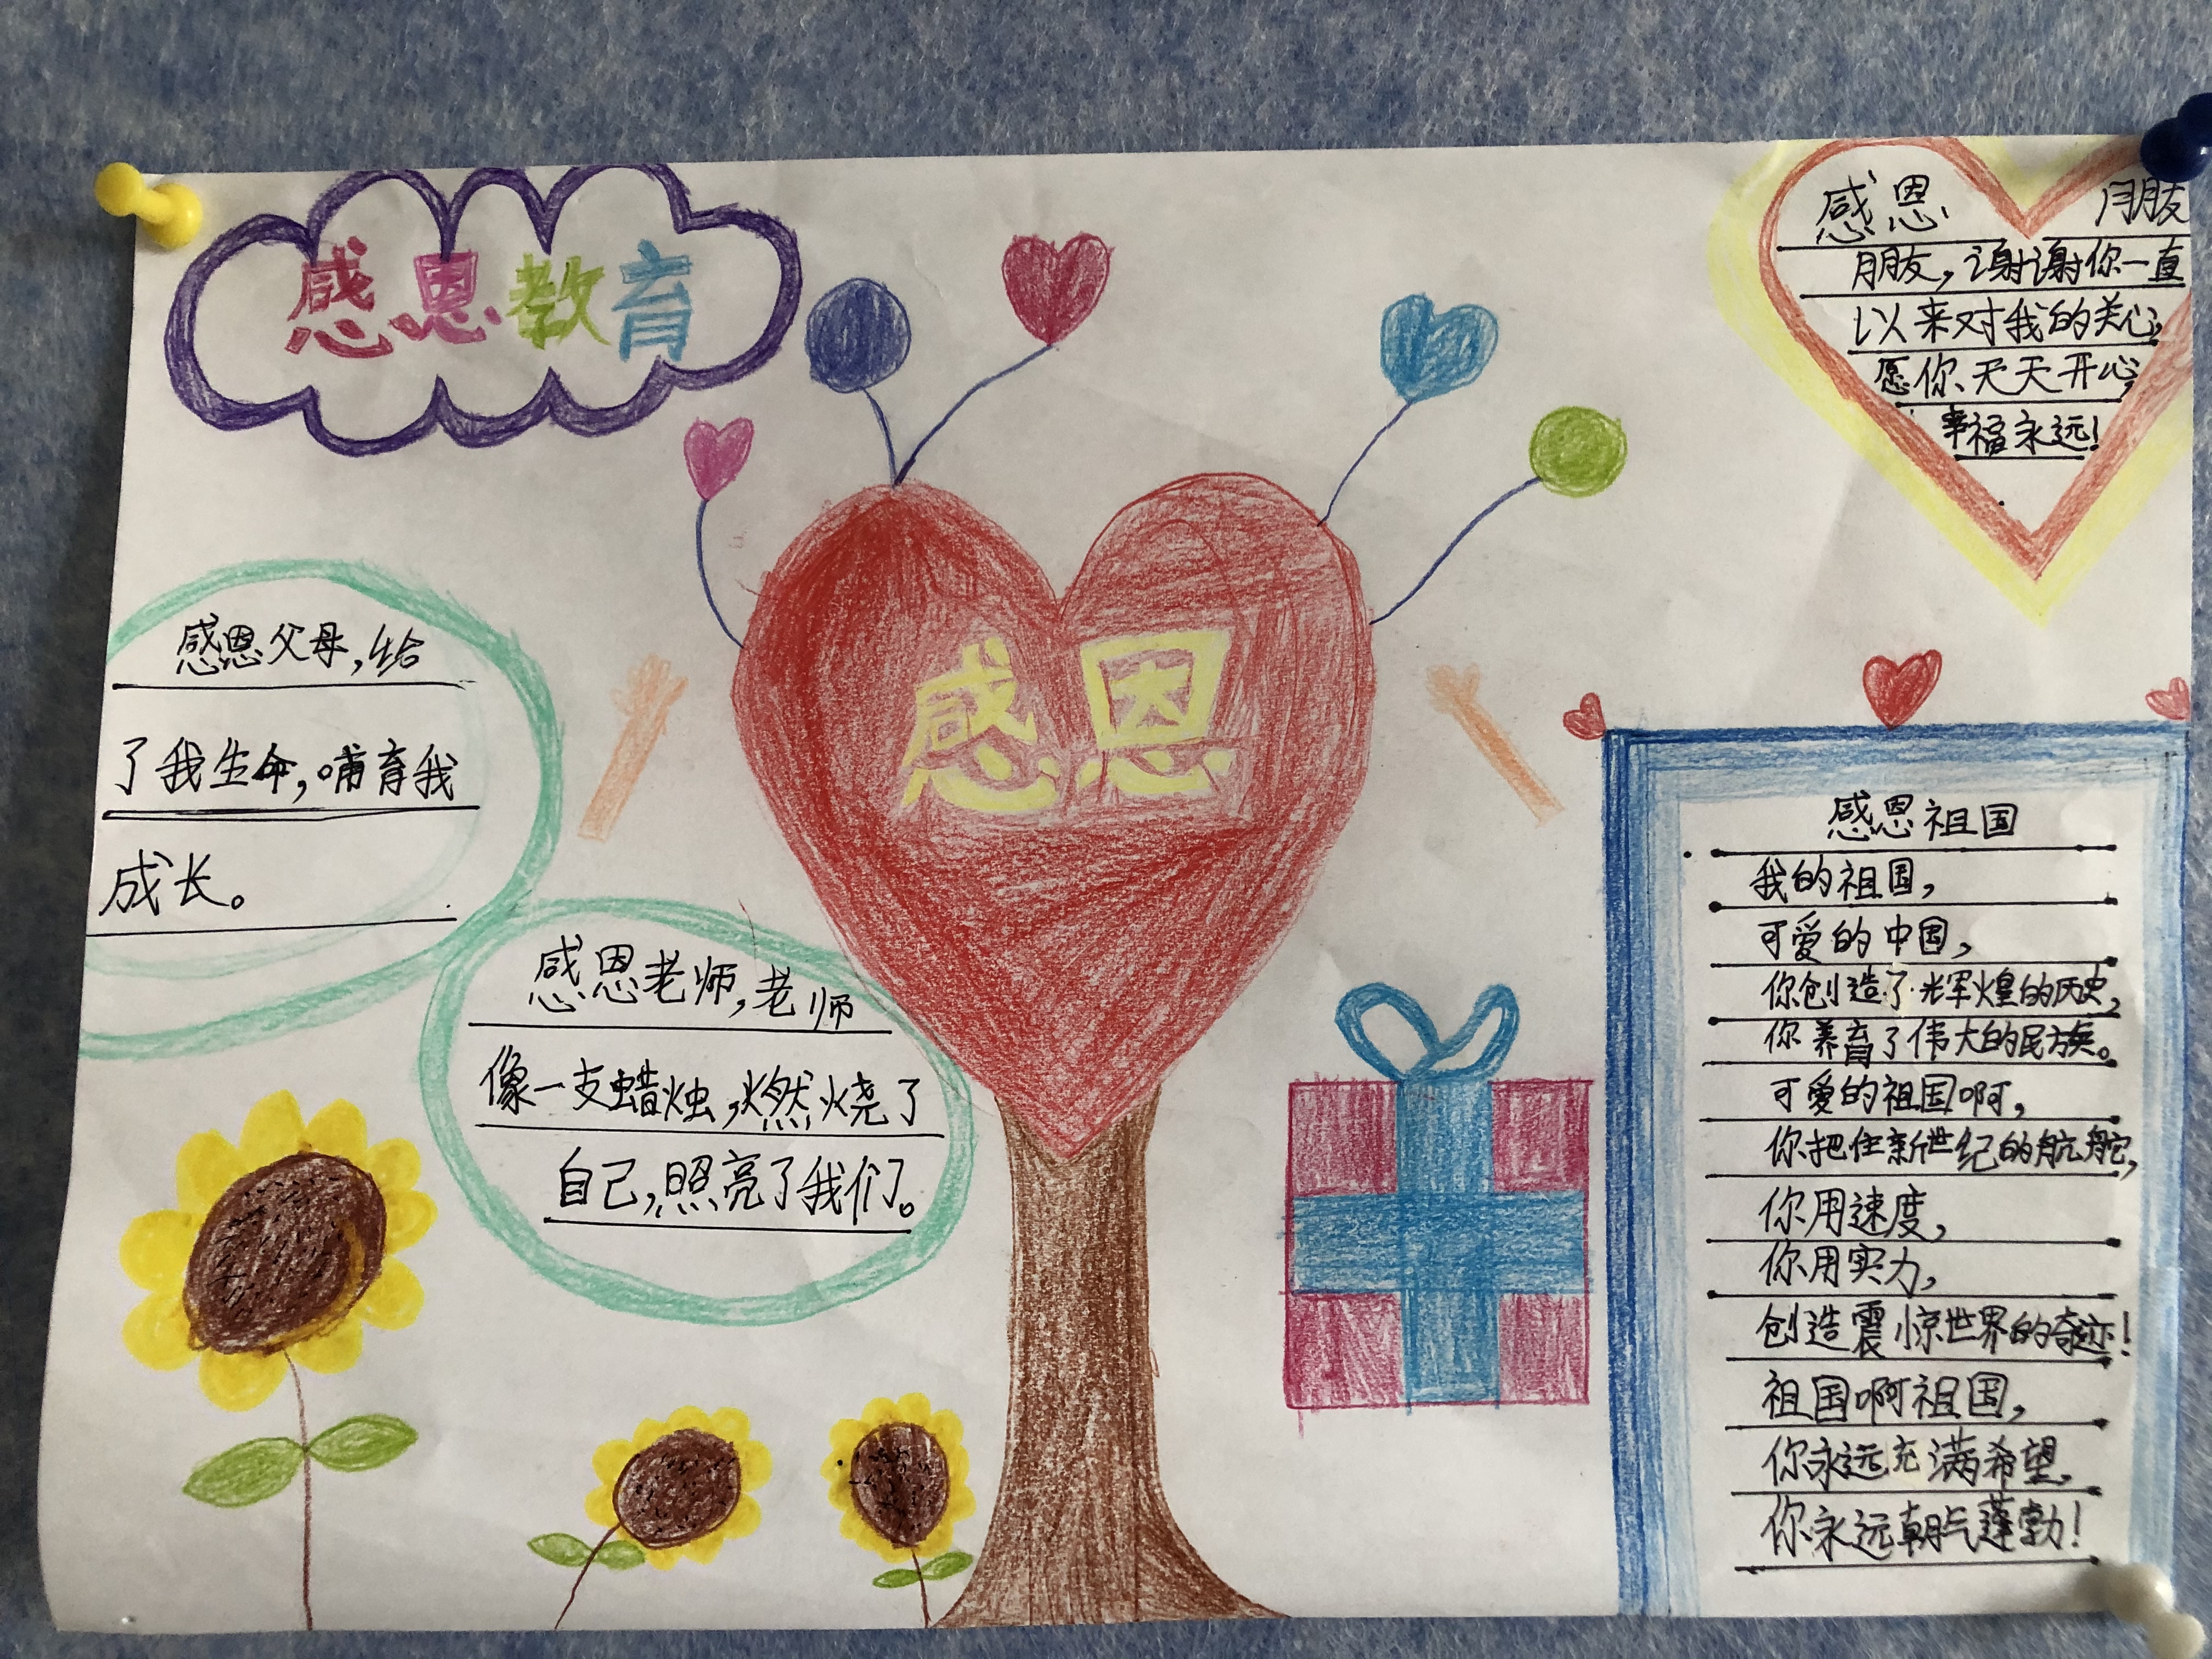 感恩教育
感恩 朋友
朋友,谢谢你一直
以来对我的关心,
愿你天天开心,
幸福永远!
感恩
感恩父母,给
了我生命,哺育我
成长。
感恩老师,老师
像一支蜡烛,燃烧了
自己,照亮了我们。
感恩祖国
我的祖国,
可爱的中国,
你创造了辉煌的历史,
你养育了伟大的民族。
可爱的祖国啊,
你把住新世纪的航舵,
你用速度,
你用实力,
创造震惊世界的奇迹!
祖国啊祖国,
你永远充满希望,
你永远朝气蓬勃!